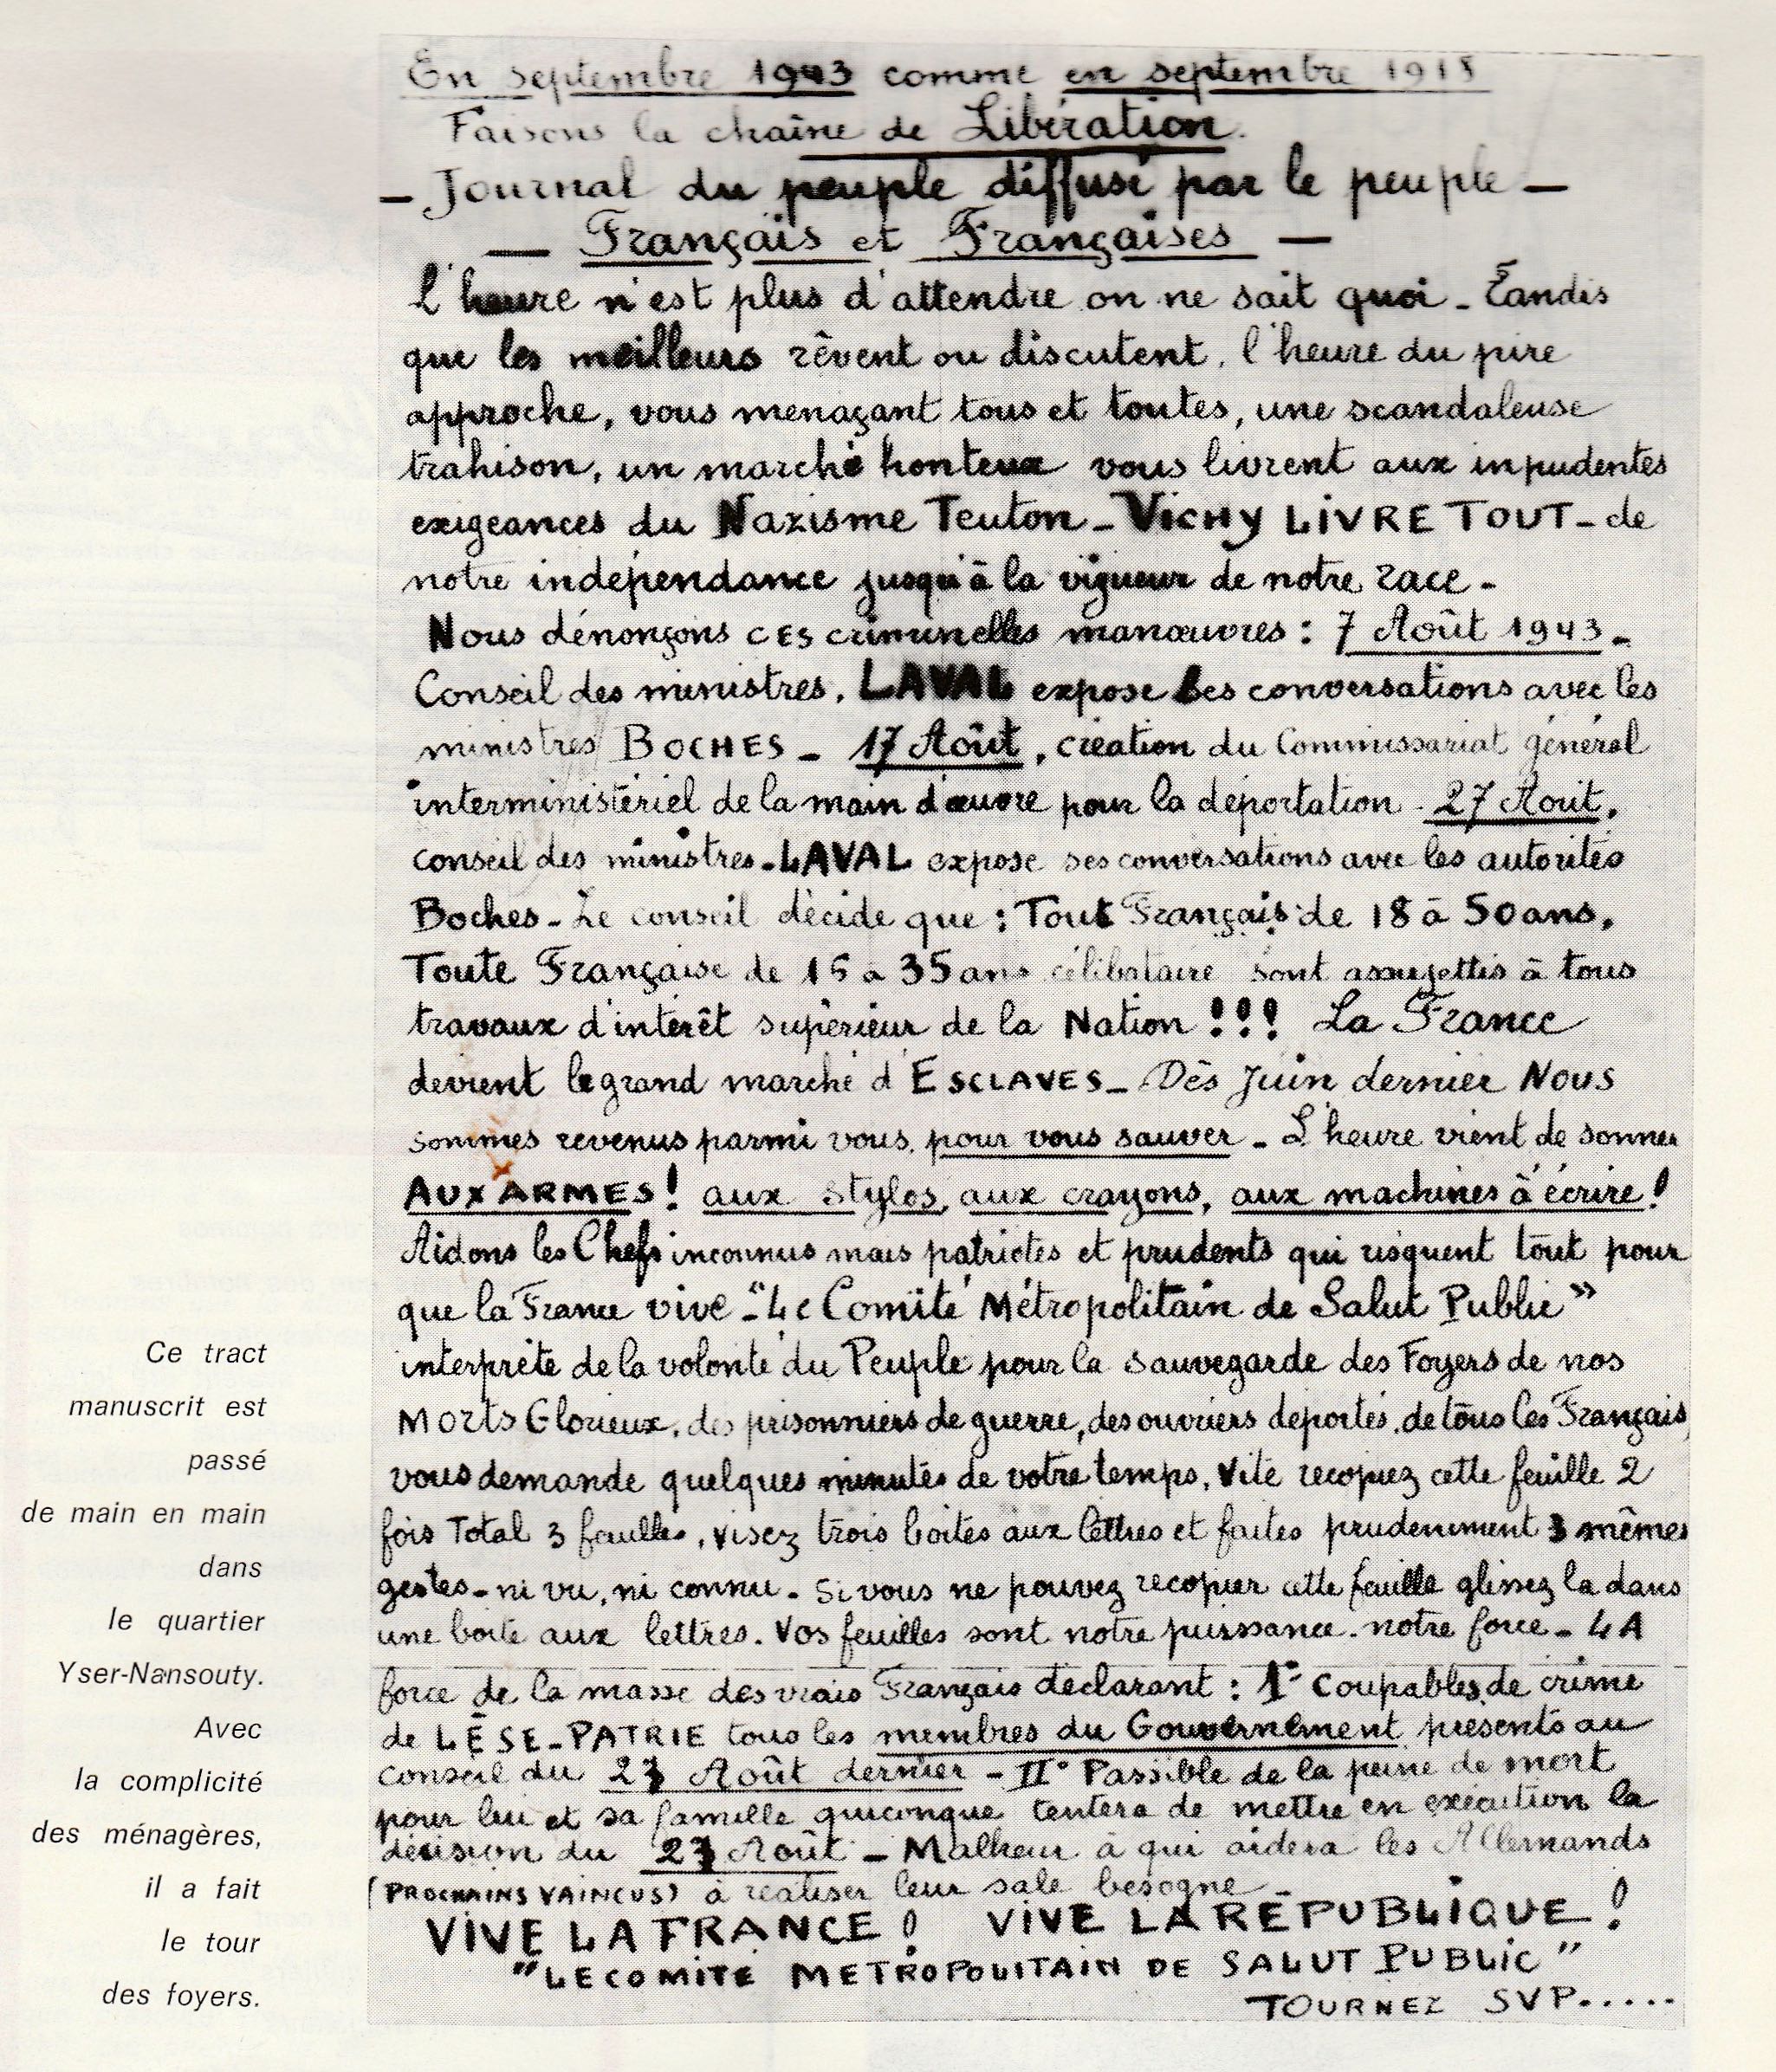 En septembre 1943 comme en septembre 1918
Faisons la chaîne de Libération.
- Journal du peuple diffusé par le peuple -
- Français et Françaises -
L'heure n'est plus d'attendre on ne sait quoi - Tandis
que les meilleurs rêvent ou discutent, l'heure du pire
approche, vous menaçant tous et toutes, une scandaleuse
trahison, un marché honteux vous livrent aux inpudentes
exigeances du Nazisme Teuton - VICHY LIVRE TOUT - de
notre indépendance jusqu'à la vigueur de notre race -
Nous dénonçons CES criminelles manœuvres : 7 Août 1943 -
Conseil des ministres, LAVAL expose ses conversations avec les
ministres BOCHES - 17 Août, création du Commissariat général
interministériel de la main d'œuvre pour la déportation - 27 Août,
conseil des ministres - LAVAL expose ses conversations avec les autorités
Boches - Le conseil décide que : Tout Français de 18 à 50 ans,
Toute Française de 15 à 35 ans célibataire sont assujettis à tous
travaux d'intérêt supérieur de la Nation !!! La France
devient le grand marché d'ESCLAVES - Dès Juin dernier NOUS
sommes revenus parmi vous, pour vous sauver - L'heure vient de sonner
AUX ARMES ! aux stylos, aux crayons, aux machines à écrire !
Aidons les Chefs inconnus mais patriotes et prudents qui risquent tout pour
que la France vive - "Le Comité Métropolitain de Salut Public"
interprète de la volonté du Peuple pour la sauvegarde des Foyers de nos
Morts Glorieux, des prisonniers de guerre, des ouvriers déportés, de tous les Français,
vous demande quelques minutes de votre temps, Vite recopiez cette feuille 2
fois Total 3 feuilles, visez trois boites aux lettres et faites prudemment 3 mêmes
gestes - ni vu, ni connu - Si vous ne pouvez recopier cette feuille glissez la dans
une boite aux lettres. Vos feuilles sont notre puissance. notre force - LA
force de la masse des vrais Français déclarant : 1° Coupables de crime
de LÈSE-PATRIE tous les membres du Gouvernement présents au
Conseil du 27 Août dernier - II° Passible de la peine de mort
pour lui et sa famille quiconque tentera de mettre en exécution la
décision du 27 Août - Malheur à qui aidera les Allemands
(PROCHAINS VAINCUS) à réaliser leur sale besogne -
VIVE LA FRANCE ! VIVE LA RÉPUBLIQUE !
"LE COMITÉ METROPOLITAIN DE SALUT PUBLIC"
TOURNEZ SVP.....
Ce tract
manuscrit est
passé
de main en main
dans
le quartier
Yser-Nansouty.
Avec
la complicité
des ménagères,
il a fait
le tour
des foyers.